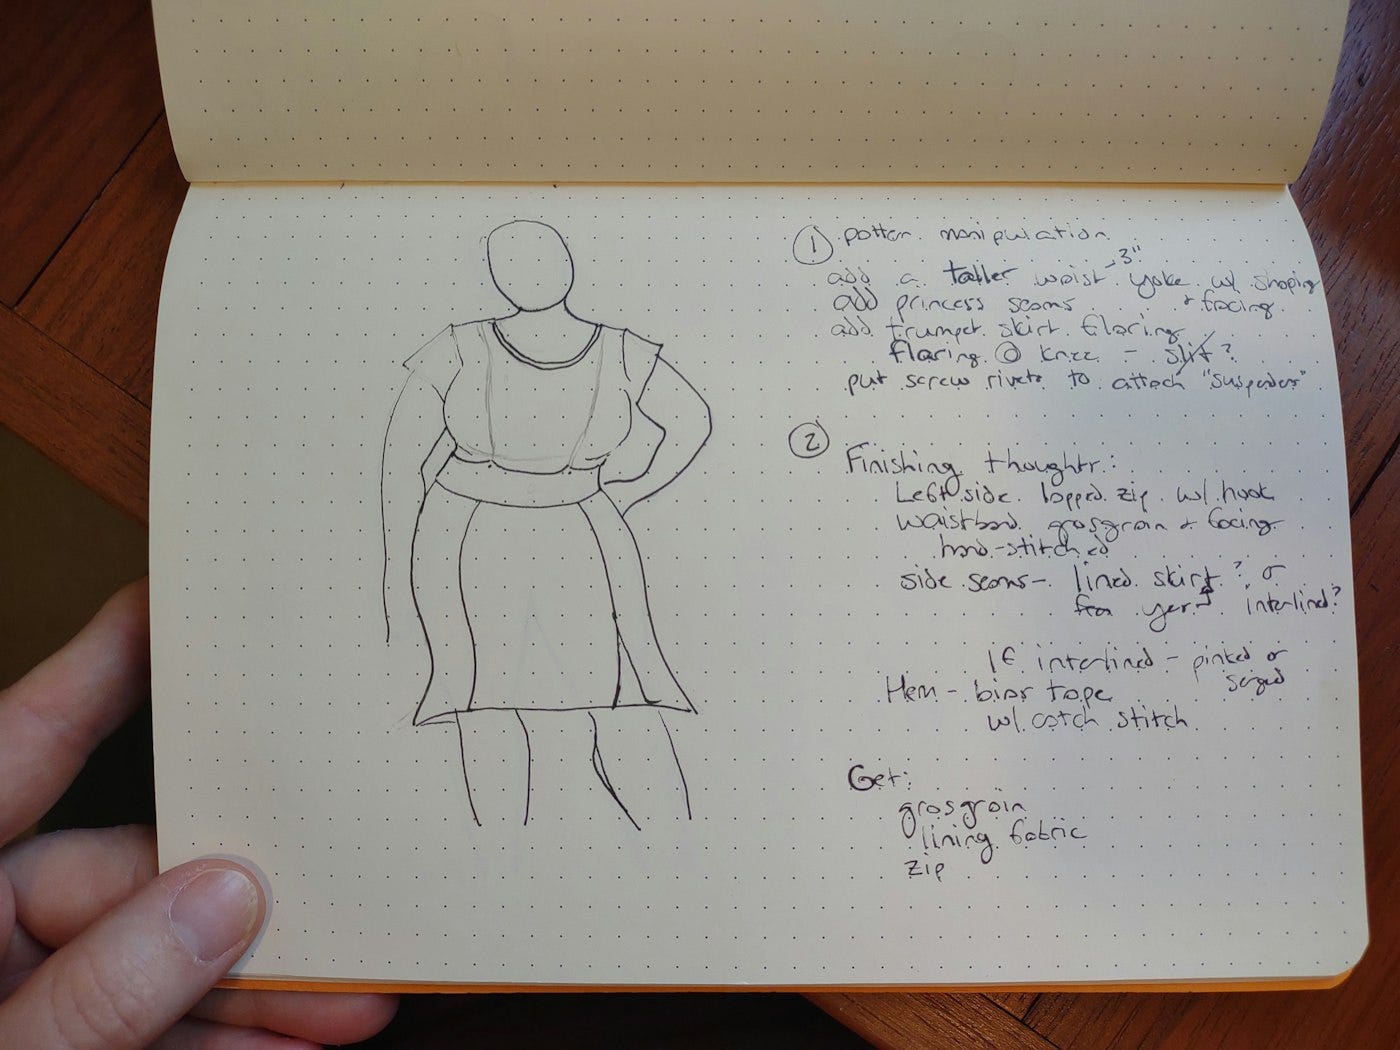 ① pattern manipulation
add a taller waist ~3" yoke w/ shaping
add princess seams + facing
add trumpet skirt flaring
flaring @ knee - slit?
put screw rivets to attach "suspenders"
② Finishing thoughts:
Left side lapped zip w/ hook
waistband grosgrain + facing
hand-stitched
side seams - lined skirt? or
interlined?
If interlined - pinked or
serged
Hem - bias tape
w/ catch stitch
Get:
grosgrain
lining fabric
zip